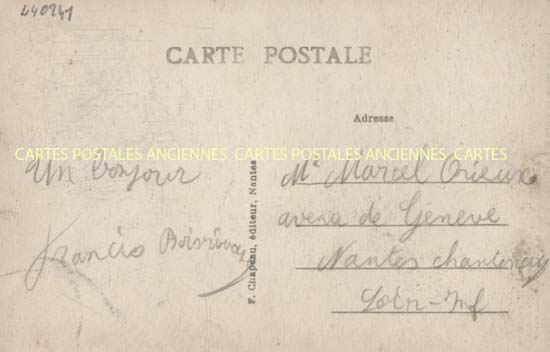 440241
CARTE POSTALE
Adresse
CARTES POSTALES ANCIENNES CARTES POSTALES ANCIENNES CARTES
Un bonjour
Francis
F. Chapeau, éditeur, Nantes
Mr Marcel Orieux
avenu de Geneve
Nantes chantenay
Loir-Inf